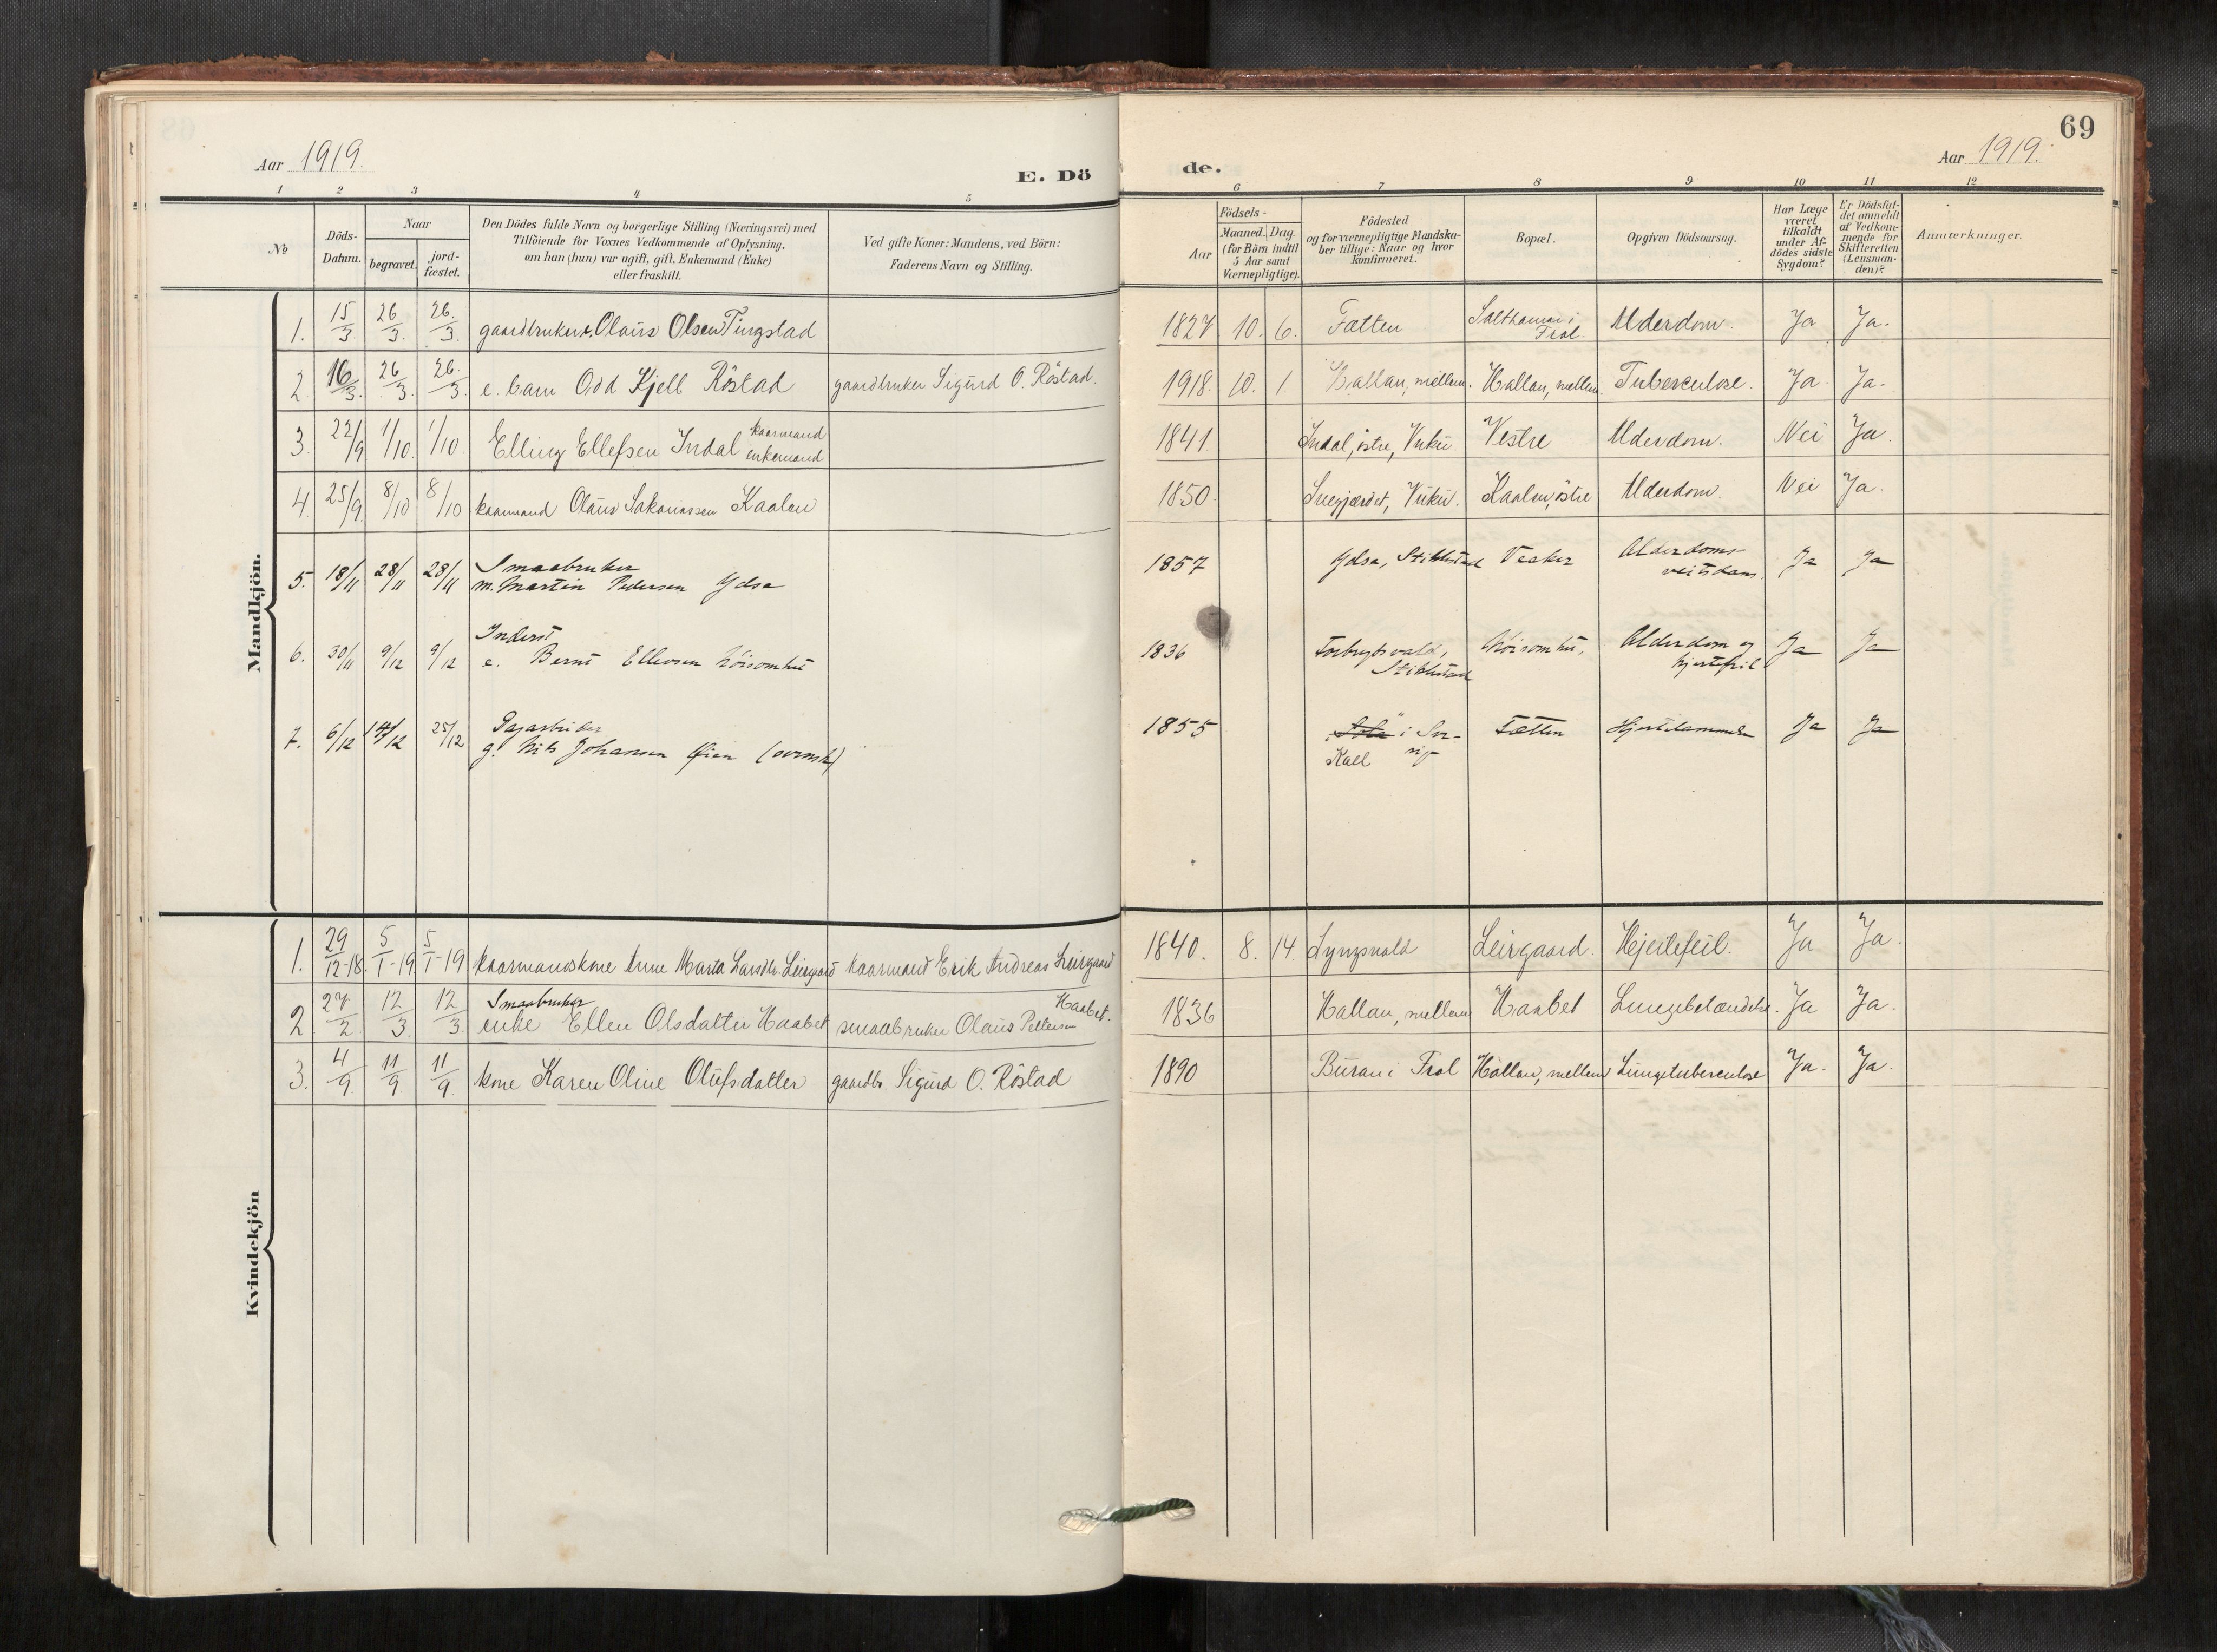 69
Aar 1919.
E. Döde.
Aar 1919.
1 2 3 4 5 6 7 8 9 10 11 12
№
Döds-
Datum.
Naar
begravet.
jord-
fæstet.
Den Dödes fulde Navn og borgerlige Stilling (Næringsvei) med
Tilföiende for Voxnes Vedkommende af Oplysning,
om han (hun) var ugift, gift, Enkemand (Enke)
eller fraskilt.
Ved gifte Koner: Mandens, ved Börn:
Faderens Navn og Stilling.
Födsels-
Aar
Maaned. Dag.
(for Börn indtil
5 Aar samt
Værnepligtige).
Födested
og for værnepligtige Mandska-
ber tillige: Naar og hvor
konfirmeret.
Bopæl.
Opgiven Dödsaarsag.
Har Læge
været
tilkaldt
under Af-
dödes sidste
Sygdom?
Er Dödsfal-
det anmeldt
af Vedkom-
mende for
Skifteretten
(Lensman-
den)?
Anmærkninger.
Mandkjön.
1. 15/3. 26/3. 26./3. gaardbruker e. Olaus Olsen Tingstad 1827 10. 6. Fætten Salthammer i Alderdom. Ja Ja.
Frol.
2. 16/3. 26/3. 26./3. e. barn Odd Kjell Röstad gaardbruker Sigurd O. Röstad. 1918. 10. 1. Hallan, mellem. Hallan, mellem Tuberculose. Ja Ja.
kaarmand
3. 22/9 1/10. 1/10. Elling Ellefsen Indal enkemand 1841. Indal, östre, Vuku. Vestre Alderdom. Nei Ja.
4. 25/9. 8/10 8/10 kaarmand Olaus Sakariassen Kaalen 1850. Vuku. Kaalen, östre Alderdom. Nei Ja.
Smaabruker
5. 18/11 28/11 28/11 m. Martin Pedersen Ydse 1857 Ydse, Stiklestad Veeker Alderdoms- Ja Ja
Inderst
6. 30/11 9/12 9/12 e. Bernt Ellevsen Höisomhu 1836 Stiklestad Höisomhu, Alderdom og Ja Ja
hjertefeil
7. 6/12 14/12 25/12 g. Nils Johansen Øien (svensk) 1855 i Sve- Fætten Hjertelammelse Ja Ja
Kall rig
Kvindekjön
1. 29/12-18. 5/1-19 5/1-19 kaarmandskone Anne Marta Larsdtr. Leirgaard kaarmand Erik Andreas Leirgaard 1840. 8. 14. Lyngsvald Leirgaard. Hjertefeil. Ja Ja.
Smaabruker Haabet.
2. 27/2. 12/3. 12/3. enke Ellen Olsdatter Haabet smaabruker Olaus Pettersen 1836 Hallan, mellem Haabet Lungebetændelse. Ja Ja.
3. 4/9. 11/9. 11/9 kone Karen Oline Olufsdatter gaardbr. Sigurd O. Röstad 1890 Buran i Frol Hallan, mellem Lungetuberculose Ja. Ja.